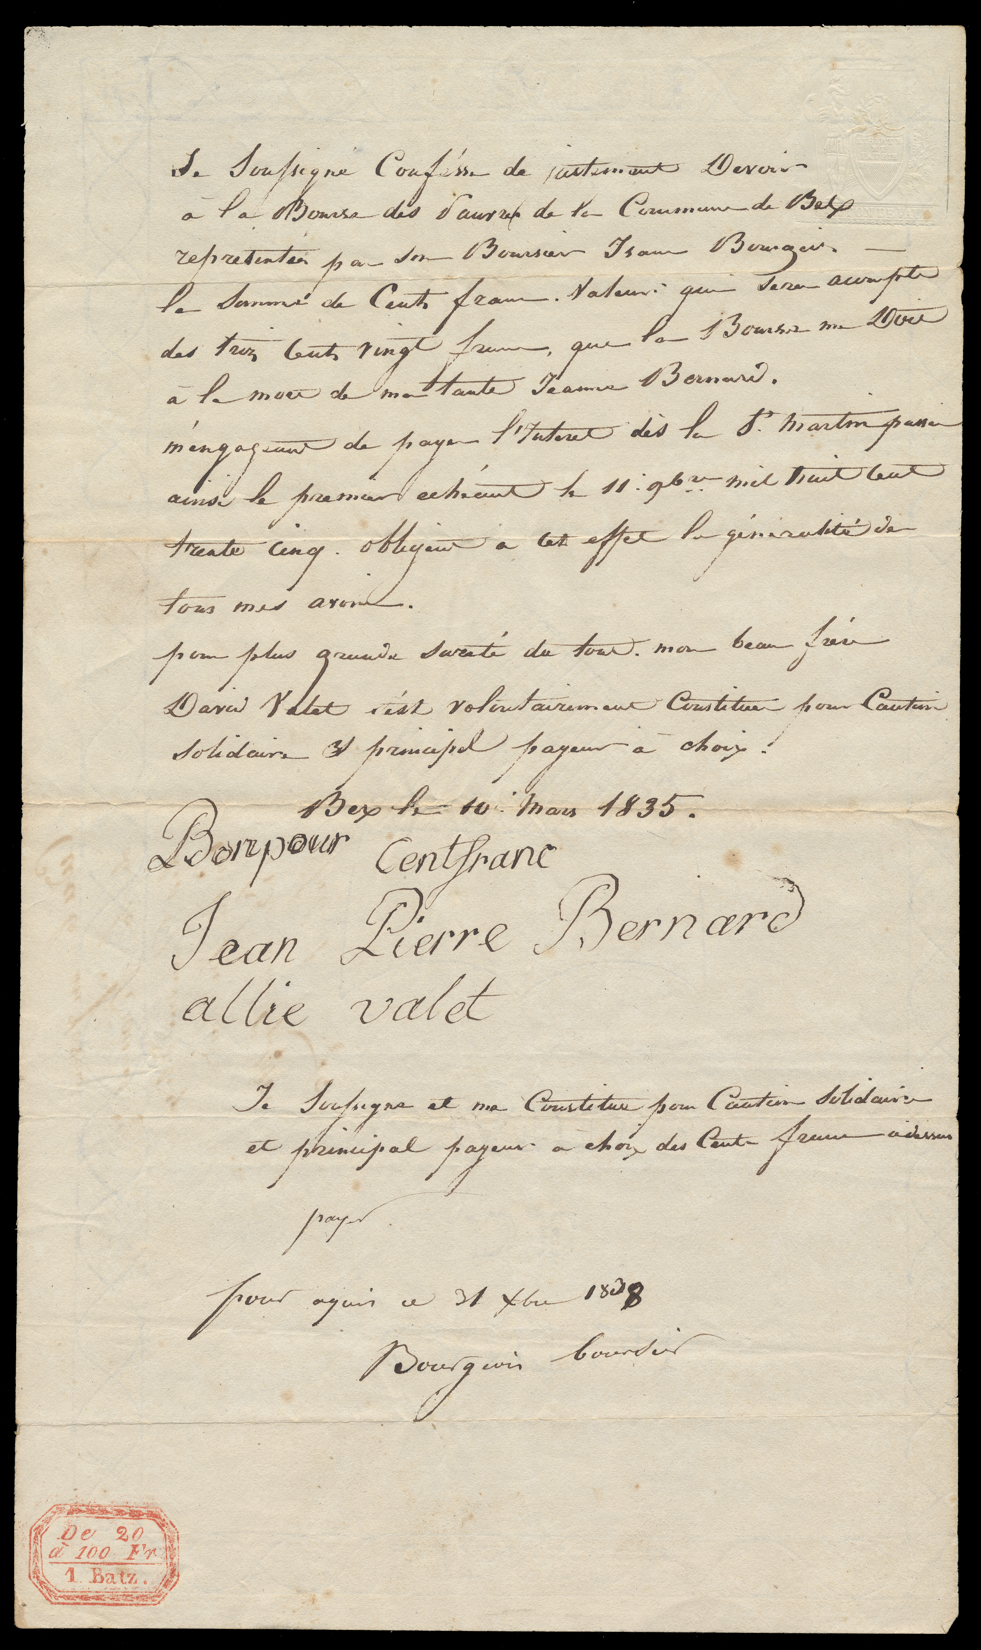 Je Soussigné Confesse de justement Devoir
à la Bourse des Pauvres de la Commune de Bex
representée par son Boursier Isaac Bourgeois
la Somme de Cents franc. Valeur qui sera acompte
des trois Cents Vingt francs, que la Bourse me Doit
à la mort de ma tante Jeanne Bernard.
m'engageant de payer l'Interet dès la St. Martin passée
ainsi le premier echéant le 11 9bre mil huit Cent
trente Cinq. obligeant a cet effet la généralité de
tous mes avoirs.
pour plus grande sureté du tout. mon beau frère
David Valet s'est volontairement Constitué pour Caution
solidaire et principal payeur à choix.
Bex le 10 Mars 1835.
Bonpour Centfranc
Jean Pierre Bernard
allie valet
Je Soussigne et me Constitue pour Caution Solidaire
et principal payeur a choix des Cents francs cidessus
payé
pour aquis ce 31 Xbre 1838
Bourgeois boursier
De 20
à 100 Fr
1 Batz.